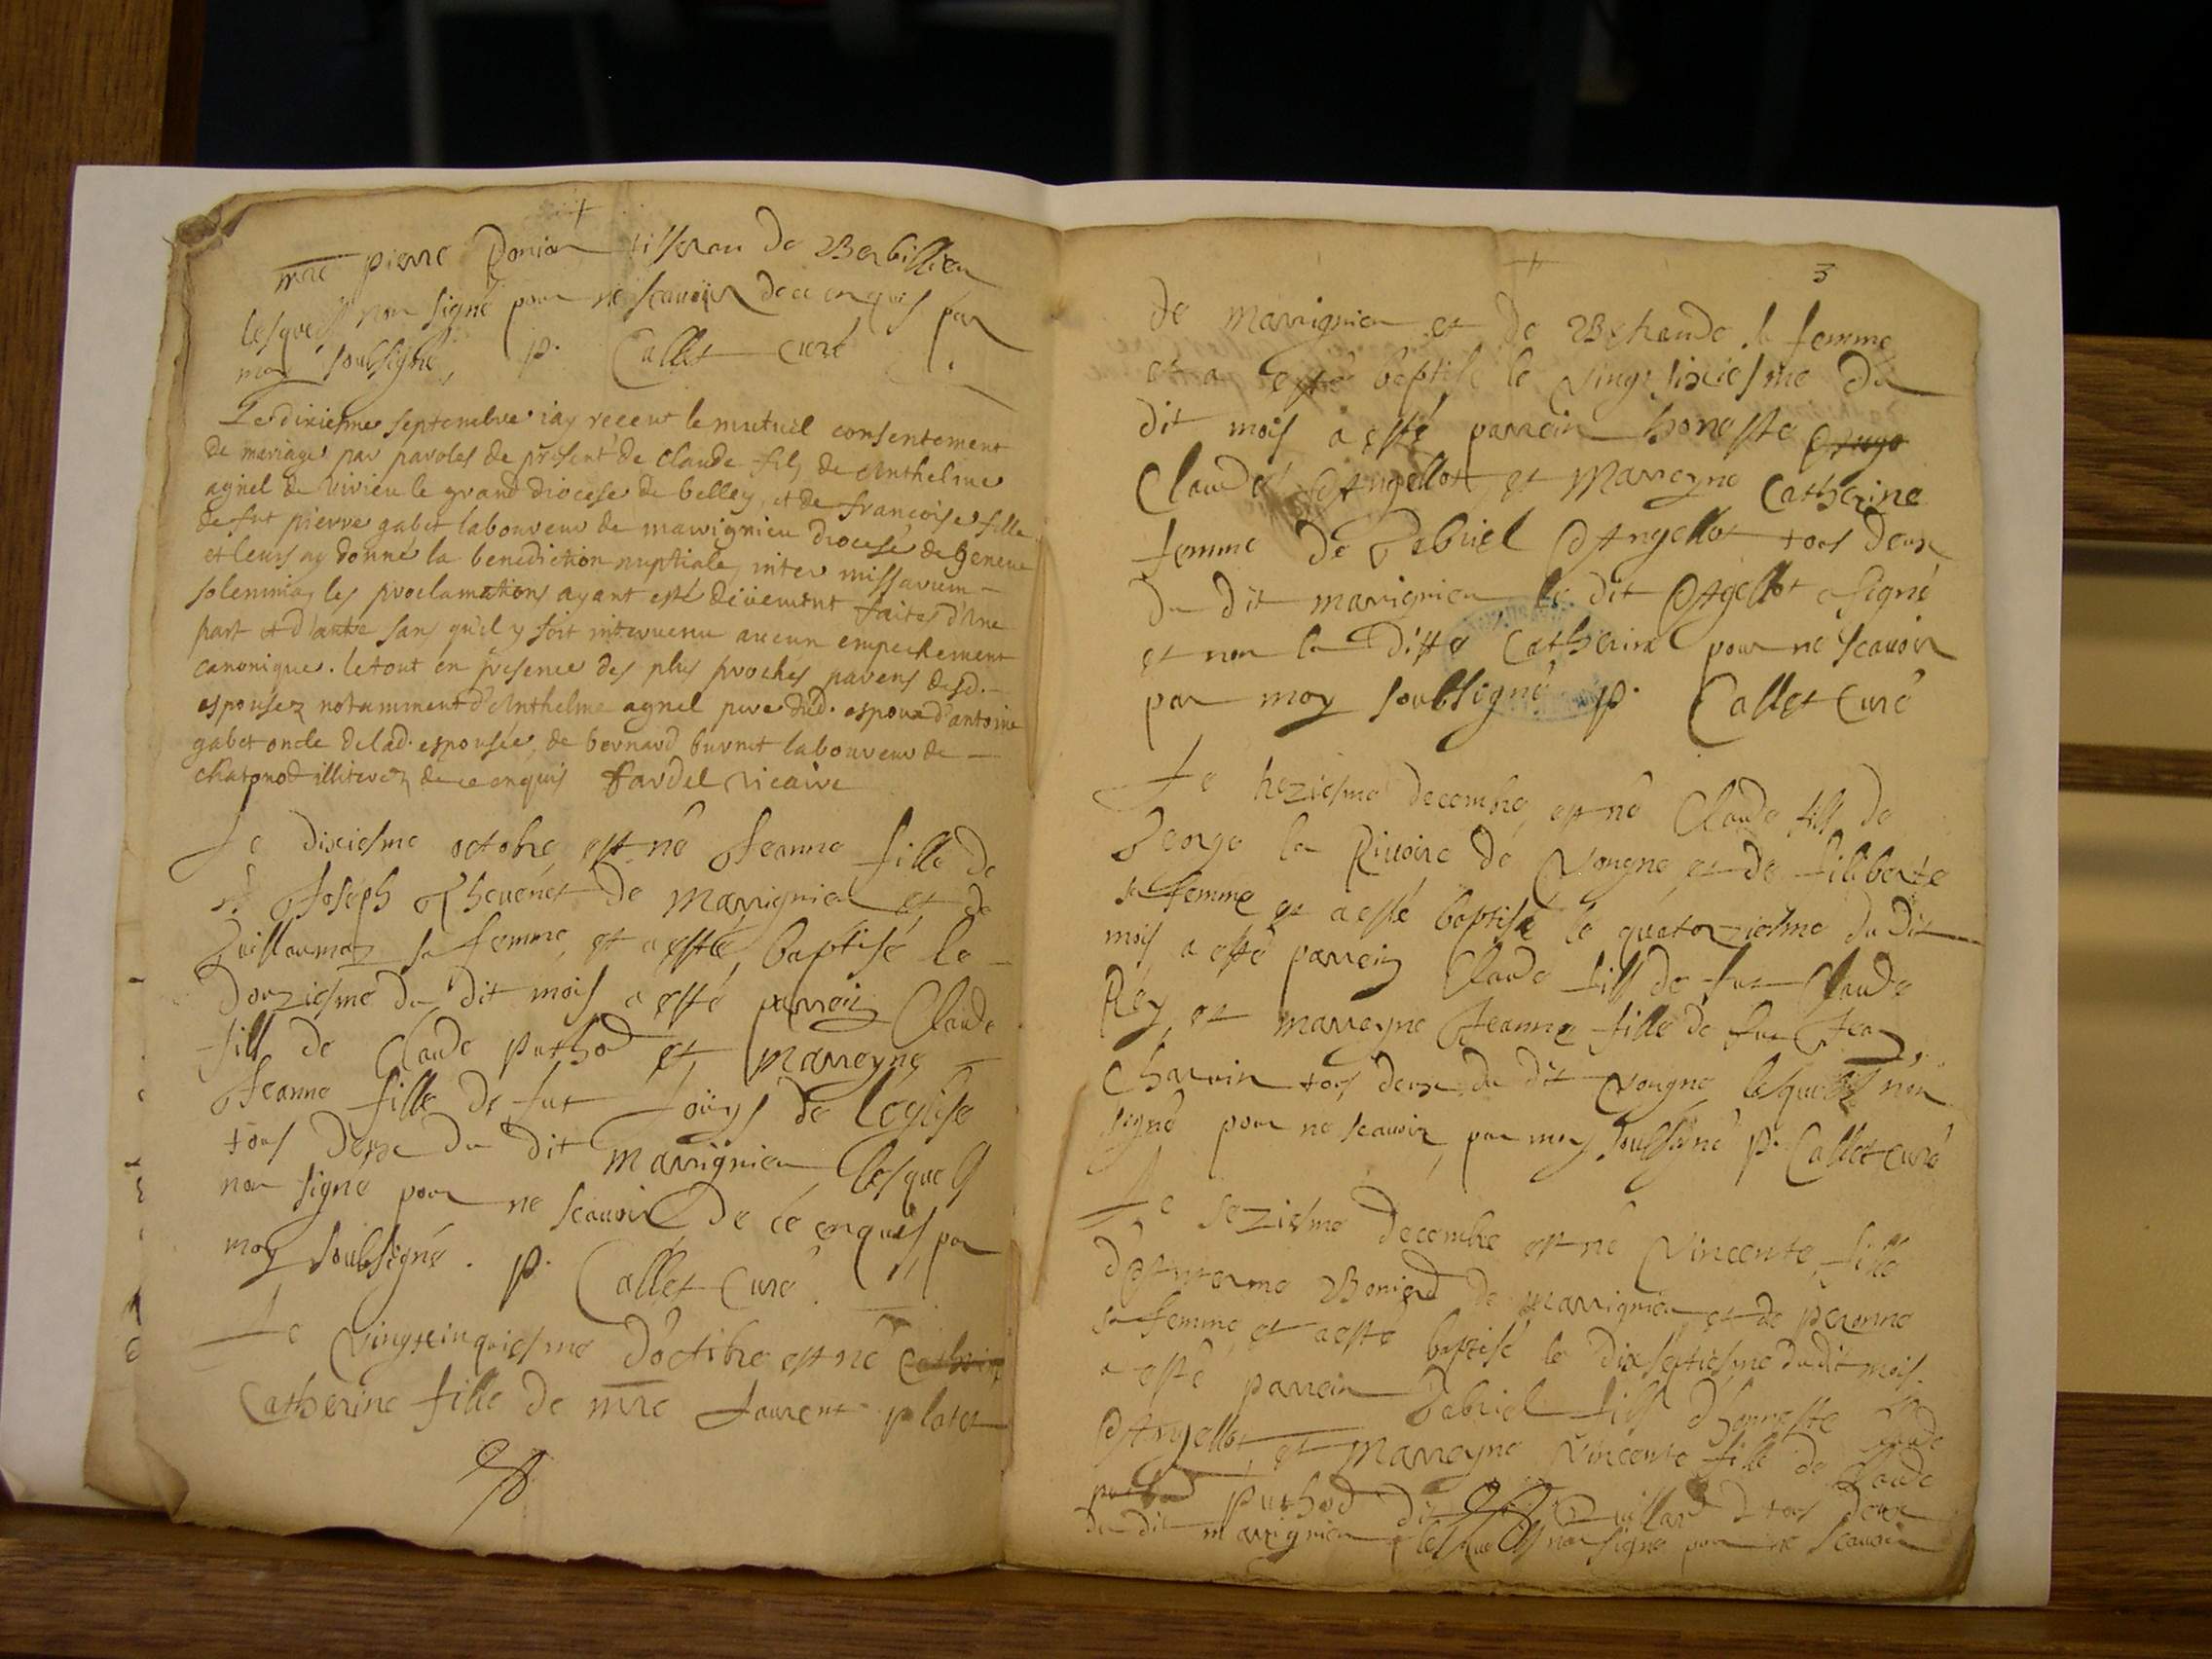 mre pierre Donion tisseran de Berbillieu
lesquels non signé pour ne scauoir de ce enquis par
moy soubsigné p. Callet curé
Le dixiesme septembre iay receut le mutuel consentement
de mariage par paroles de present de claude fils de Anthelme
agnel de vivieu le grand diocese de belley, et de francoise fille
de fut pierre gabet laboureur de marrignieu diocese de geneve
et leurs ay donné la benediction nuptiale, inter missarum
solemnia, les proclamations ayant esté deüement faites d'une
part et d'autre sans qu'il y soit intervenu aucun empechement
canonique. le tout en presence des plus proches parens desd.
espousez notamment d'Anthelme agnel pere dud. espoux d'antoine
gabet oncle de lad. espousée, de bernard burnet laboureur de
chatonod illiterez de ce enquis Fardel vicaire
Le dixiesme octobre est né Jeanne fille de
Joseph Theuenet de Marrignieu et de
Guillauma sa femme, et a esté baptisé le
douziesme du dit mois a esté parrein Claude
fils de Claude puthod et Marreyne
Jeanne fille de fut Loüys de Leglise
tous deux du dit Marrignieu lesquels
non signé pour ne scauoir de ce enquis par
moy soubsigné. p. Callet Curé
Le vingtcinquiesme d'octobre est né Catherine
Catherine fille de mre Laurent platet
3
de marrignieu et de Behande sa femme
et a esté baptisé le vingtsixiesme du
dit mois a esté parrein honeste
Claude Angellot et Marreyne Catherine
femme de Gebriel Angellot tous deux
du dit marrignieu le dit Agellot a signé
et non la ditte Catherine pour ne scauoir
par moy soubsigné p. Callet Curé
Le treziesme decembre est né Claude fils de
George la Riuoire de Vongne et de filiberte
sa femme et a esté baptisé le quatorziesme du dit
mois a esté parrein Claude fils de fut Claude
Rey et marreyne Jeanne fille de fut Jean
Charuin tous deux du dit Vongne lesquels non
signé pour ne scauoir par moy soubsigné p. Callet curé
Le seziesme decembre est né Vincente fille
d'Anterme Boniard de Marrignieu et de peronne
sa femme et a esté baptisé le dixseptiesme du dit mois.
a esté parrein Gabriel fils d'honneste Claude
Angellot, et Marreyne Vincente fille de Claude
puthod puthod dit Guillard tous deux
du dit marrignieu lesquels non signé pour ne scauoir